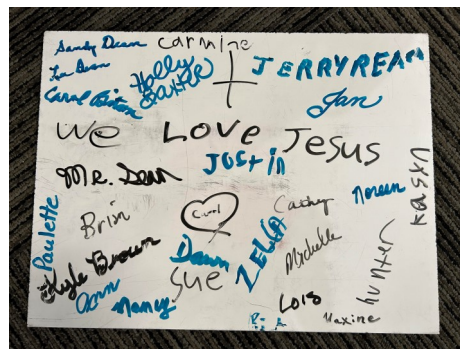 Sandy Dean
Carmine
Lou Dean
Holly
JERRY REAM
Carol
Jan
We Love Jesus
Justin
Mr. Sean
Noreen
Paulette
Brian
Carol
Cathy
Kyle Brown
Dawn
ZELLA
Michelle
hunter
Sue
Nancy
Lois
Maxine